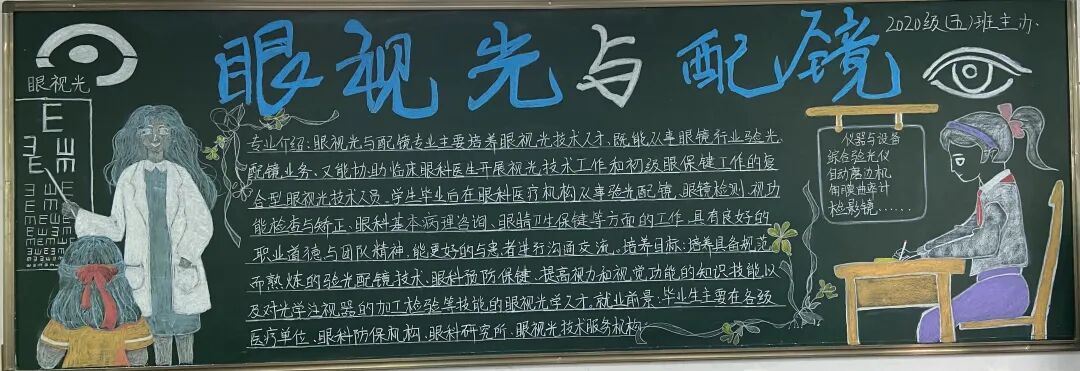 眼视光与配镜
2020级(五)班主办
眼视光
E
专业介绍:眼视光与配镜专业主要培养眼视光技术人才,既能从事眼镜行业验光
配镜业务、又能协助临床眼科医生开展视光技术工作和初级眼保键工作的复
合型眼视光技术人员。学生毕业后在眼科医疗机构从事验光配镜、眼镜检测、视功
能检查与矫正、眼科基本病理咨询、眼睛卫生保健等方面的工作,具有良好的
职业道德与团队精神,能更好的与患者进行沟通交流。培养目标:培养具备规范
而熟炼的验光配镜技术、眼科预防保健、提高视力和视觉功能的知识技能,以
及对光学注视器的加工检验等技能的眼视光学人才。就业前景:毕业生主要在各级
医疗单位、眼科防保机构、眼科研究所、眼视光技术服务机构
仪器与设备
综合验光仪
自动磨边机
角膜曲率计
检影镜......